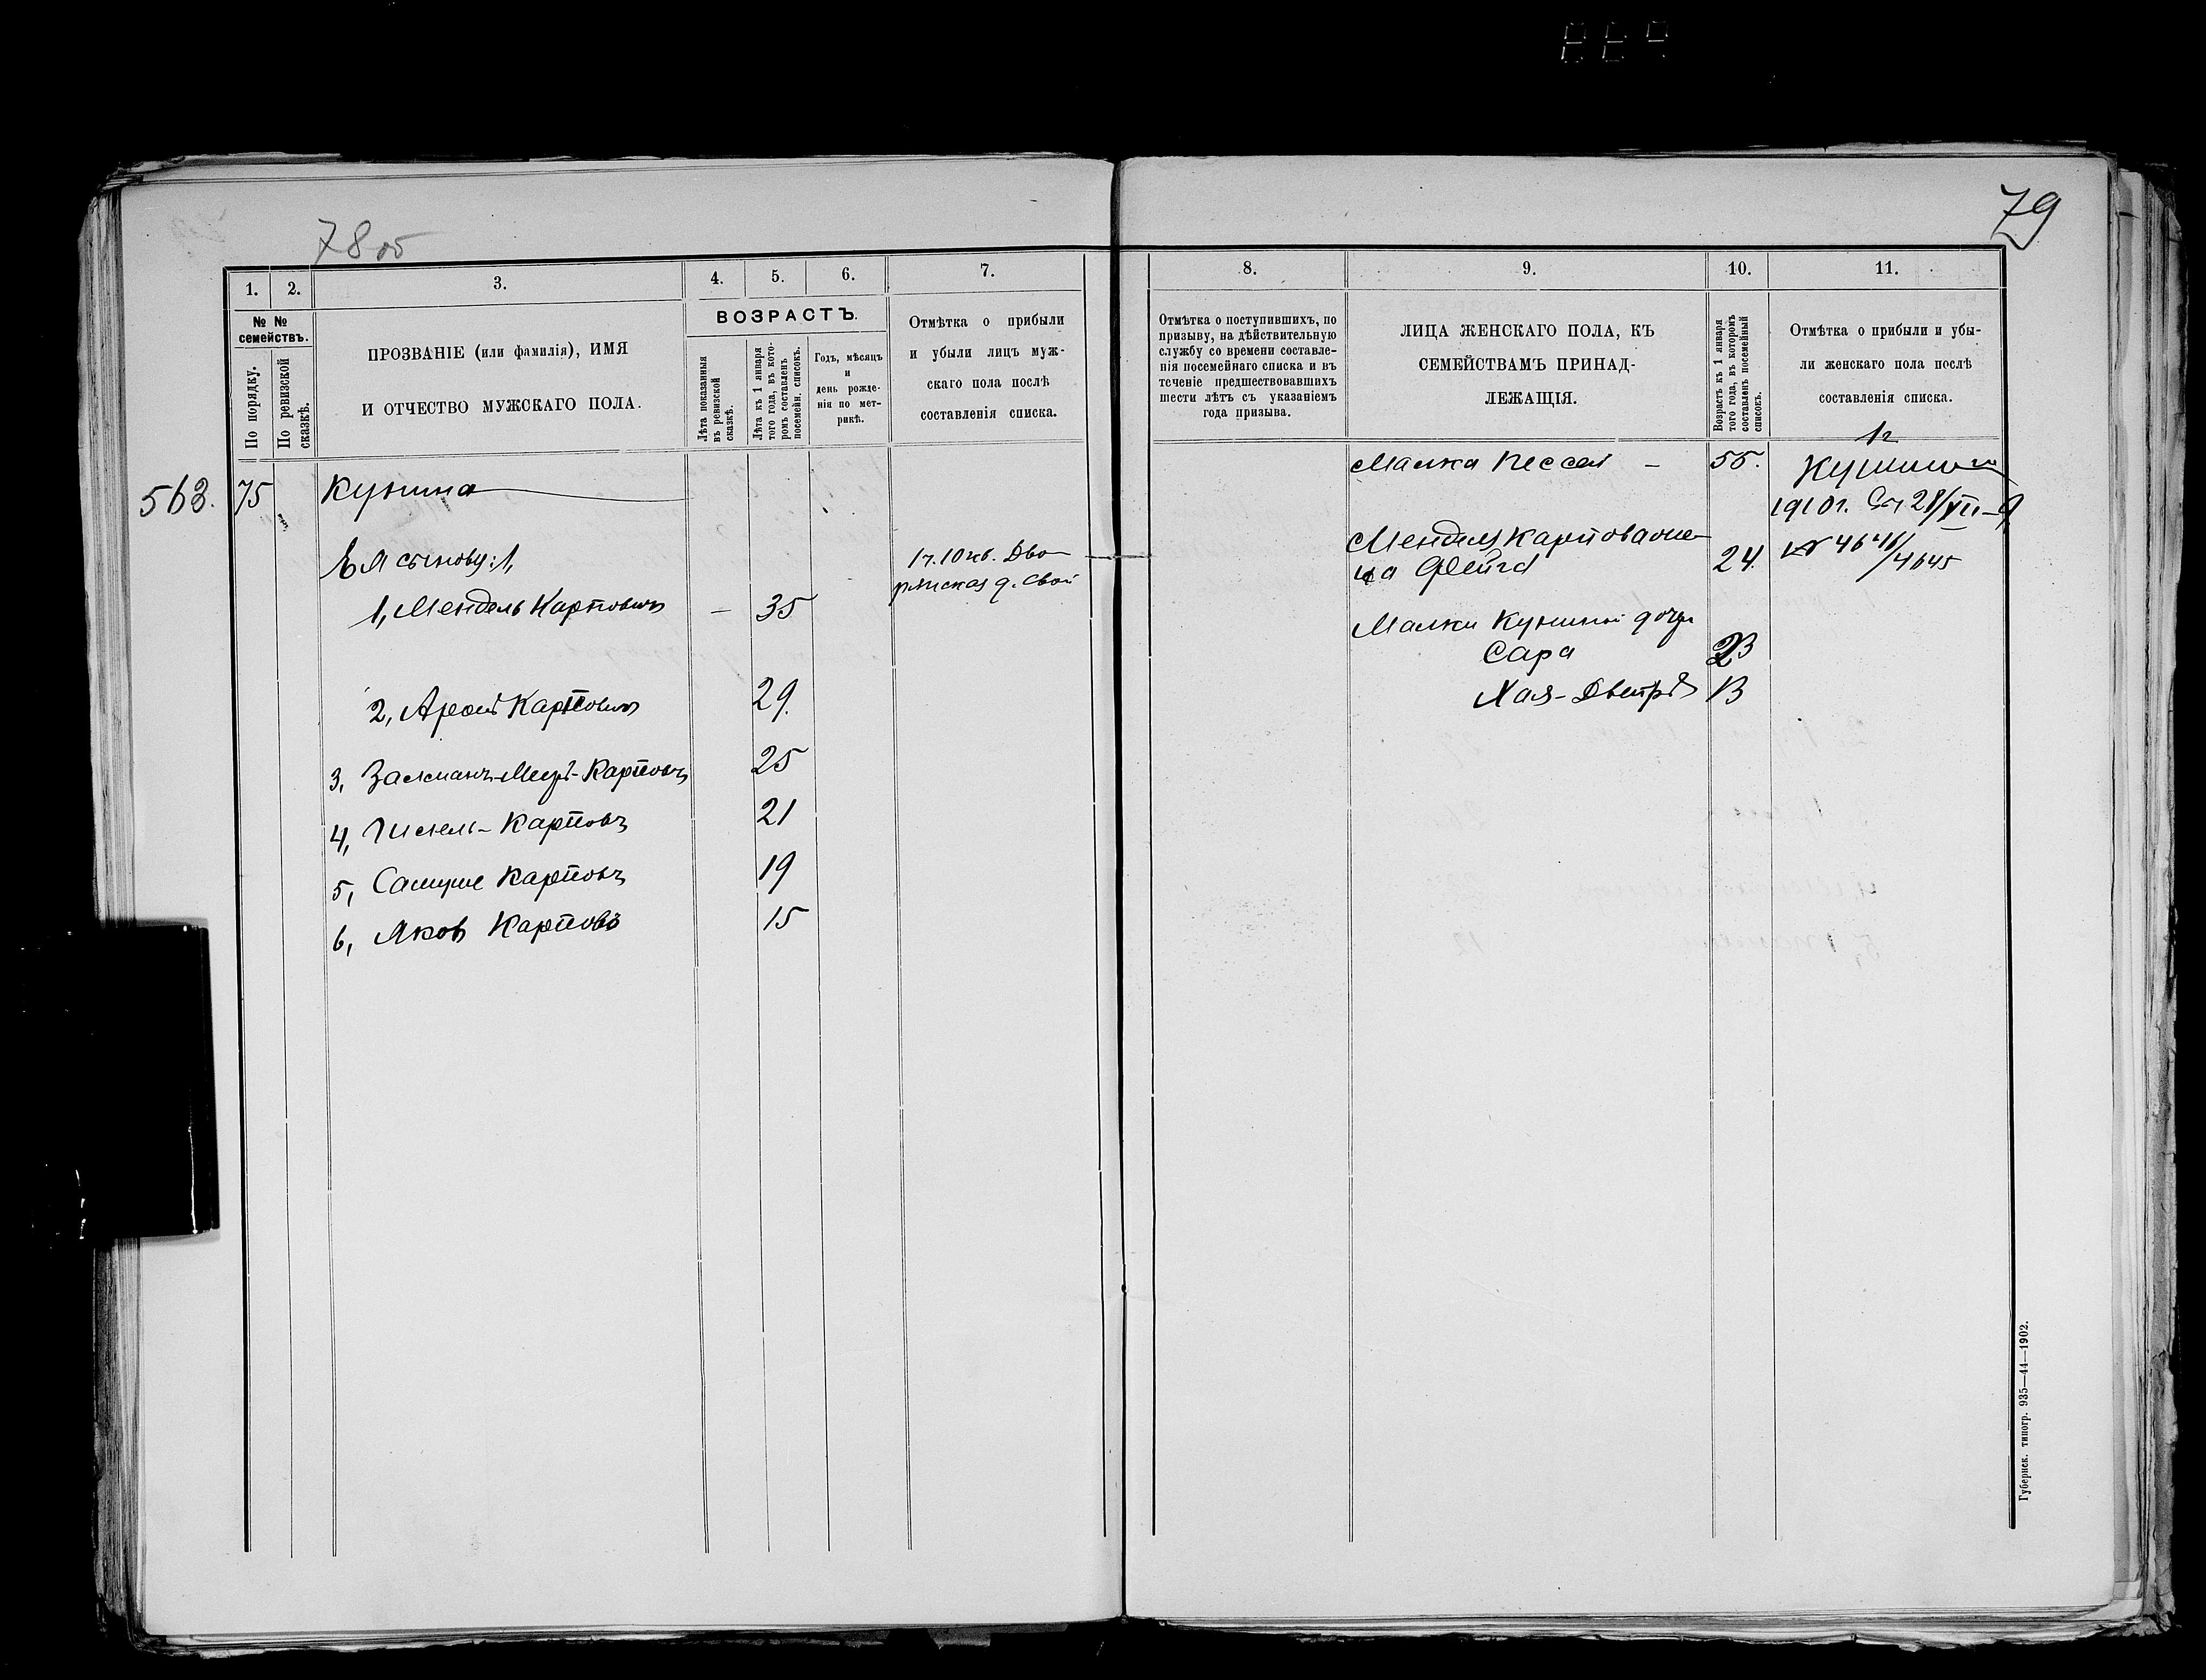 78 об
79
1.
2.
3.
4.
5.
6.
7.
№ №
семействъ.
По порядку.
По ревизской
сказкѣ.
ПРОЗВАНІЕ (или фамилія), ИМЯ
И ОТЧЕСТВО МУЖСКАГО ПОЛА.
ВОЗРАСТЪ.
Лѣта показанныя
въ ревизской
сказкѣ.
Лѣта къ 1 января
того года, въ кото-
ромъ составленъ
посемейн. списокъ.
Годъ, мѣсяцъ
и
день рожде-
нія по мет-
рикѣ.
Отмѣтка о прибыли
и убыли лицъ муж-
скаго пола послѣ
составленія списка.
563. 75 Кунина
Ея сыновья:
1, Мендель Карповичъ — 35
1ч. 10 кв. Дво-
рянская д. свой
2, Аронъ Карповичъ 29.
3, Залманъ- Карповъ 25
4, Карповъ 21
5, Карповъ 19
6, Яковъ Карповъ 15
8.
9.
10.
11.
Отмѣтка о поступившихъ, по
призыву, на дѣйствительную
службу со времени составле-
нія посемейнаго списка и въ
теченіе предшествовавшихъ
шести лѣтъ съ указаніемъ
года призыва.
ЛИЦА ЖЕНСКАГО ПОЛА, КЪ
СЕМЕЙСТВАМЪ ПРИНАД-
ЛЕЖАЩІЯ.
Возрастъ къ 1 января
того года, въ которомъ
составленъ посемейный
списокъ.
Отмѣтка о прибыли и убы-
ли женскаго пола послѣ
составленія списка.
Малка Песся — 55.
1910г. 28/XII
№ 4646/4645
Менделя Карпова же-
на Фейга 24.
Малки Куниной дочери
Сара 23
Хая-Двейра 13
Губернск. типогр. 935—44—1902.